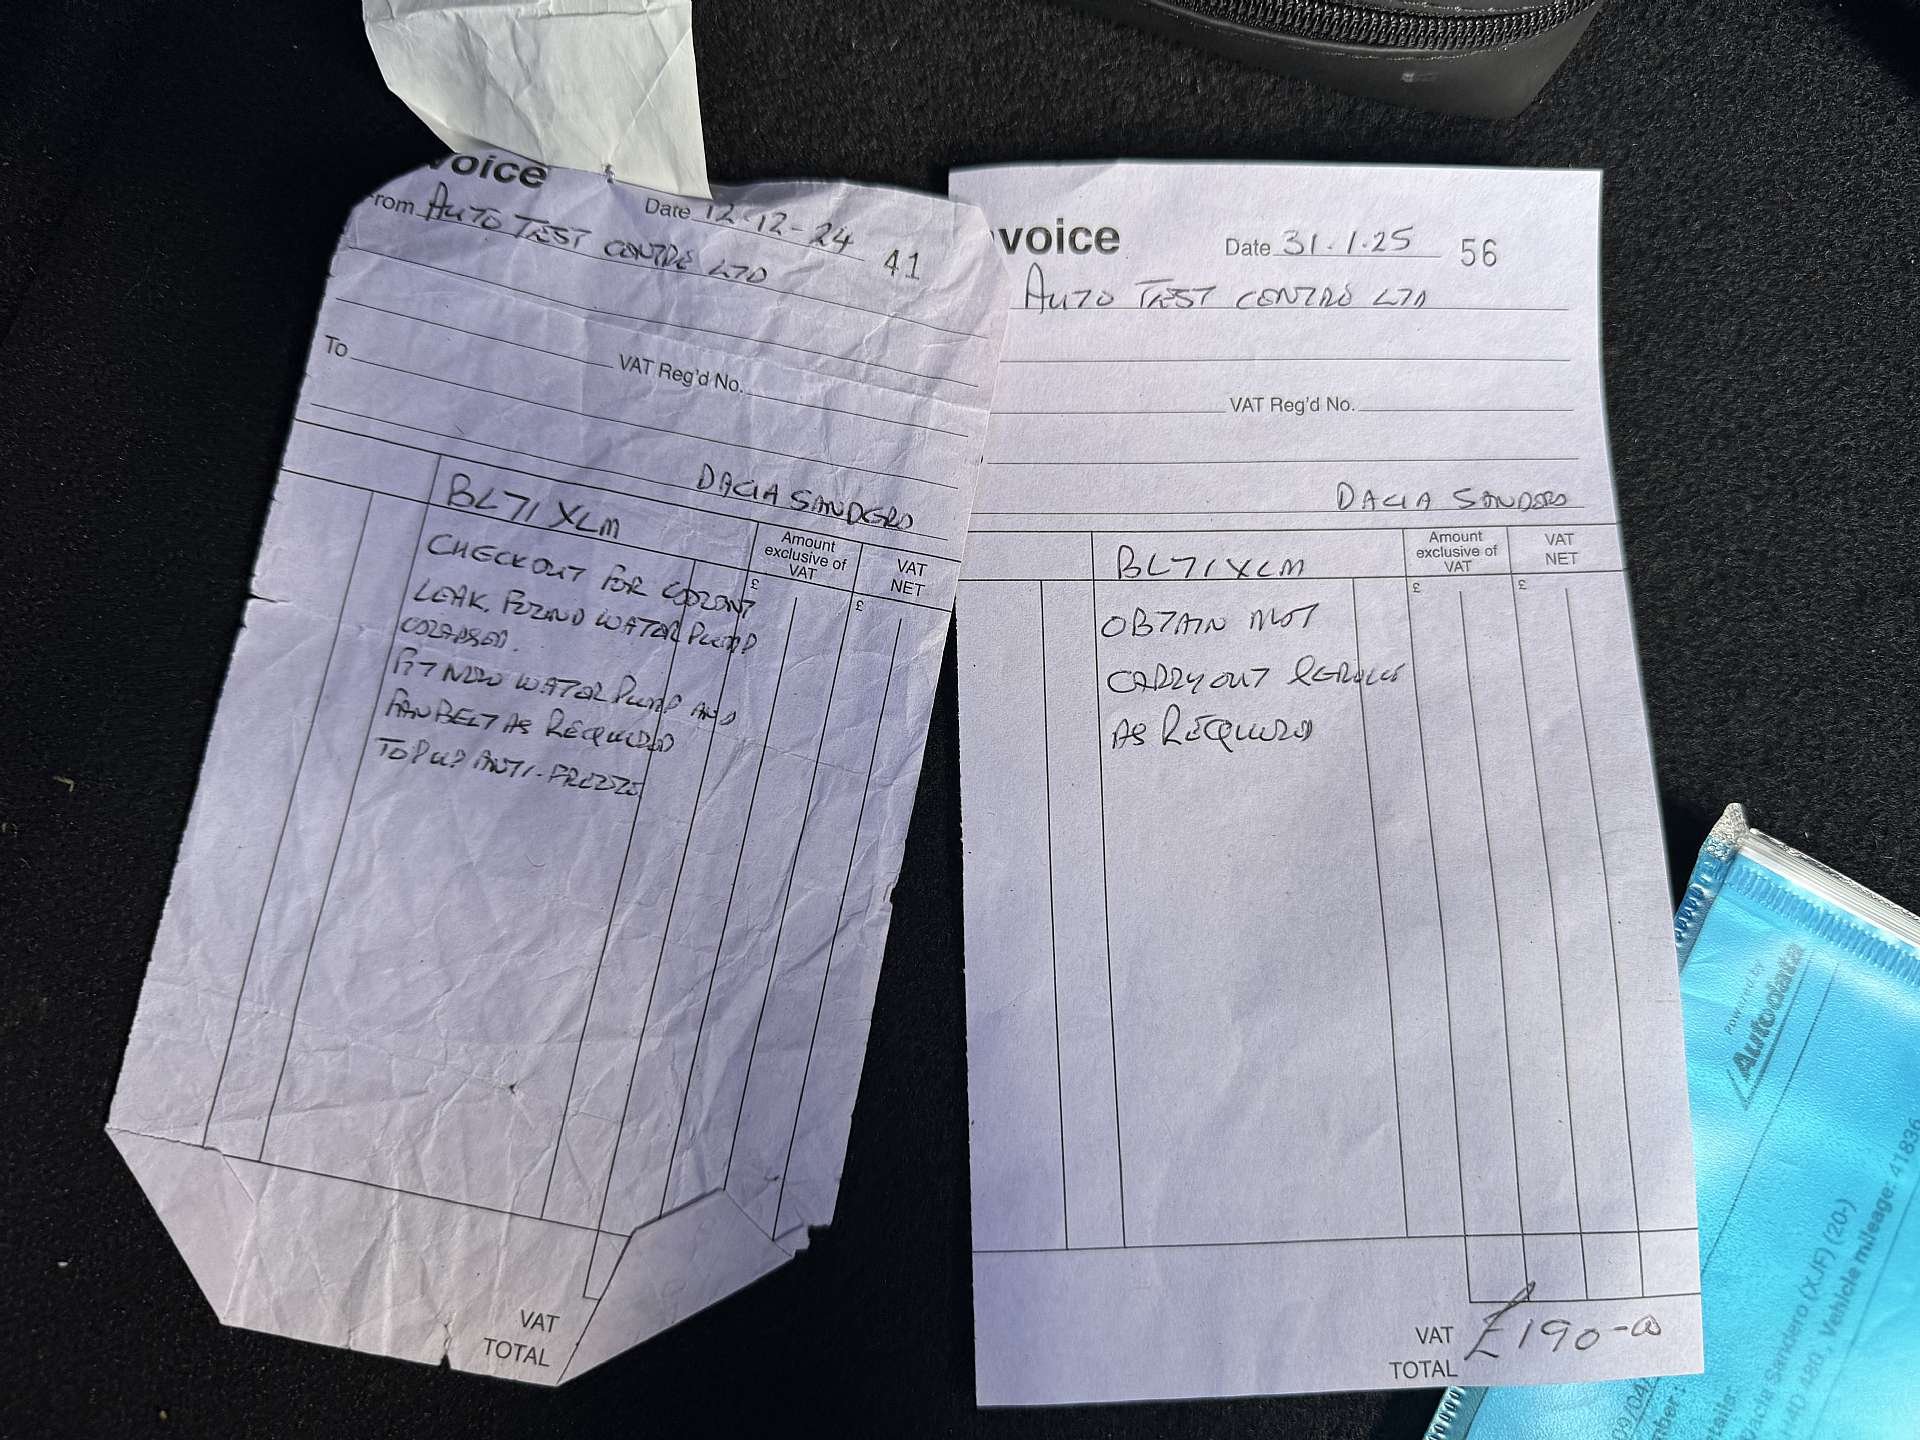 voice
From AUTO TEST CENTRE LTD
Date 12-12-24 41
To
VAT Reg'd No.
DACIA SANDERO
BL71 XLM
Amount exclusive of VAT
VAT NET
£ £
CHECKOUT FOR COOLENT
LEAK. FOUND WATER PUMP
COLAPSED.
FIT NEW WATER PUMP AND
FANBELT AS REQUIRED
TOP UP ANTI-FREEZE
VAT
TOTAL
voice
Date 31.1.25 56
AUTO TEST CENTRE LTD
VAT Reg'd No.
DACIA SANDERO
BL71 XLM
Amount exclusive of VAT
VAT NET
£ £
OBTAIN MOT
CARRY OUT SERVICE
AS REQUIRED
VAT
TOTAL £190-00
POWERED BY
Autodata
Dacia Sandero (XJF) (20-)
H4D 480, Vehicle mileage: 41836
09/04/